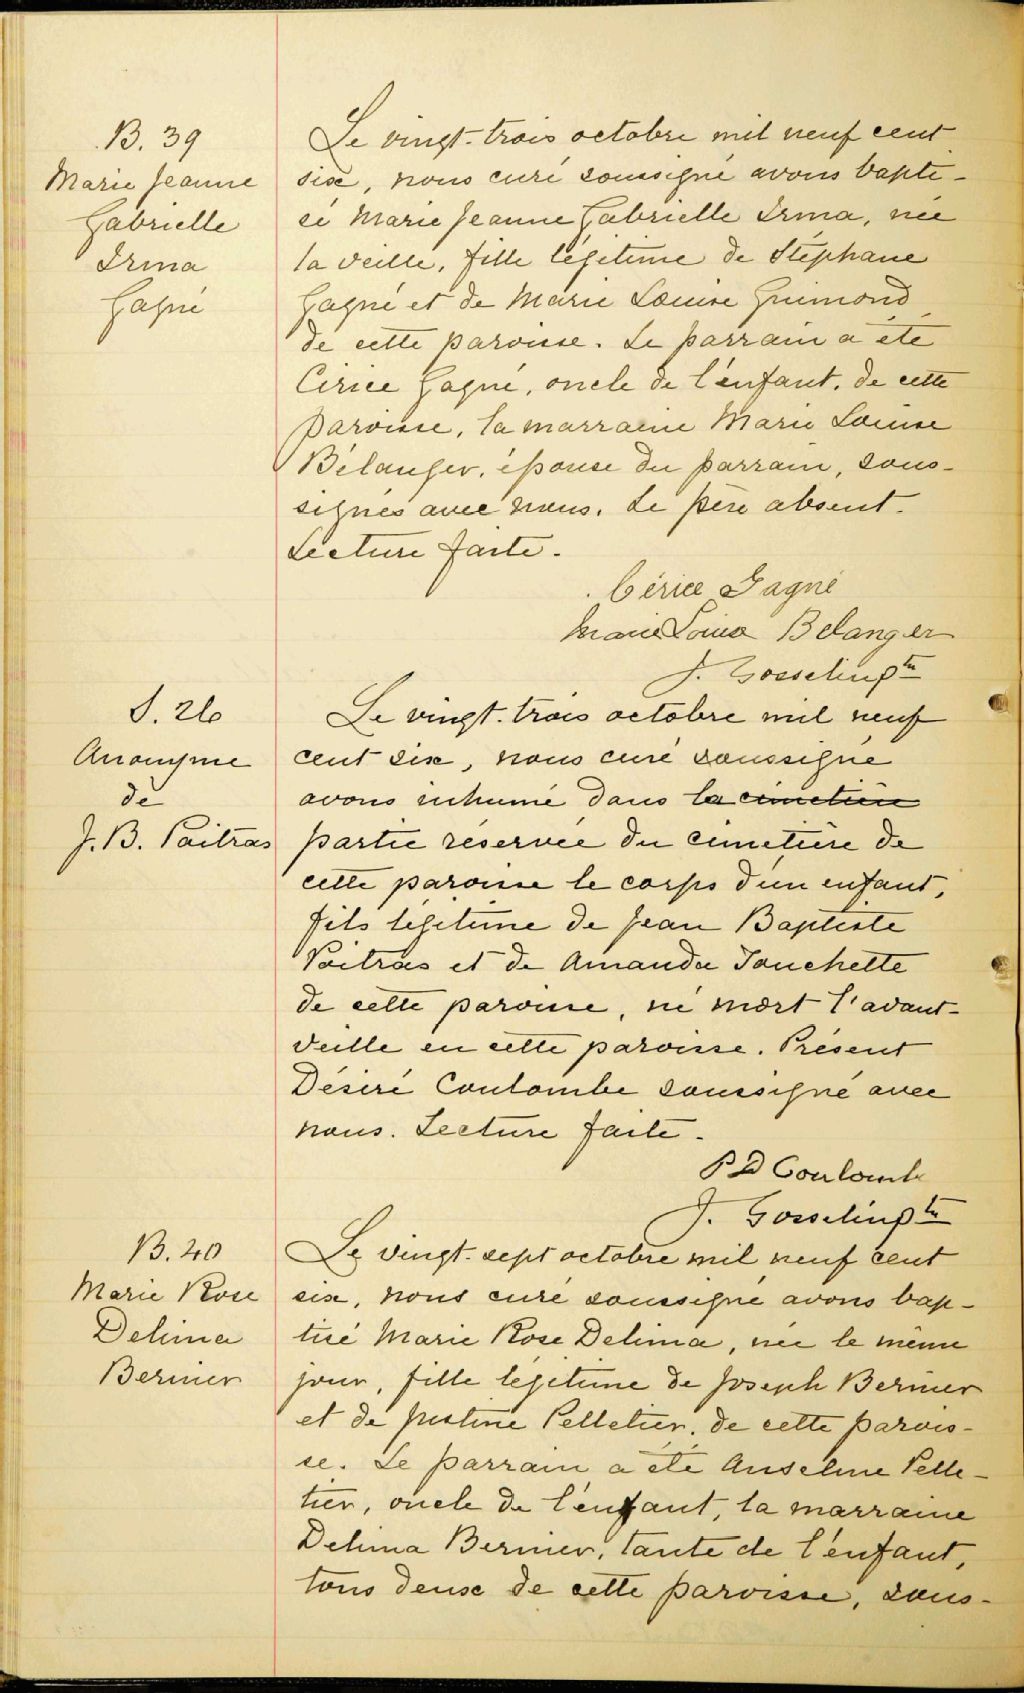 B. 39
Marie Jeanne
Gabrielle
Irma
Gagné
Le vingt-trois octobre mil neuf cent
six, nous curé soussigné avons bapti-
sé Marie Jeanne Gabrielle Irma, née
la veille, fille légitime de Stéphane
Gagné et de Marie Louise Guimond
de cette paroisse. Le parrain a été
Cirice Gagné, oncle de l'enfant, de cette
paroisse, la marraine Marie Louise
Bélanger, épouse du parrain, sous-
signés avec nous. Le père absent.
Lecture faite.
Cérice Gagné
Marie Louise Belanger
J. Gosselin ptre
S. 26
Anonyme
de
J. B. Poitras
Le vingt-trois octobre mil neuf
cent six, nous curé soussigné
avons inhumé dans le cimetière
partie réservée du cimetière de
cette paroisse le corps d'un enfant,
fils légitime de Jean Baptiste
Poitras et de Amanda Touchette
de cette paroisse, né mort l'avant-
veille en cette paroisse. Présent
Désiré Coulombe soussigné avec
nous. Lecture faite.
P D Coulombe
J. Gosselin ptre
B. 40
Marie Rose
Delima
Bernier
Le vingt-sept octobre mil neuf cent
six, nous curé soussigné avons bap-
tisé Marie Rose Delima, née le même
jour, fille légitime de Joseph Bernier
et de Justine Pelletier, de cette parois-
se. Le parrain a été Anselme Pelle-
tier, oncle de l'enfant, la marraine
Delima Bernier, tante de l'enfant,
tous deux de cette paroisse, sous-